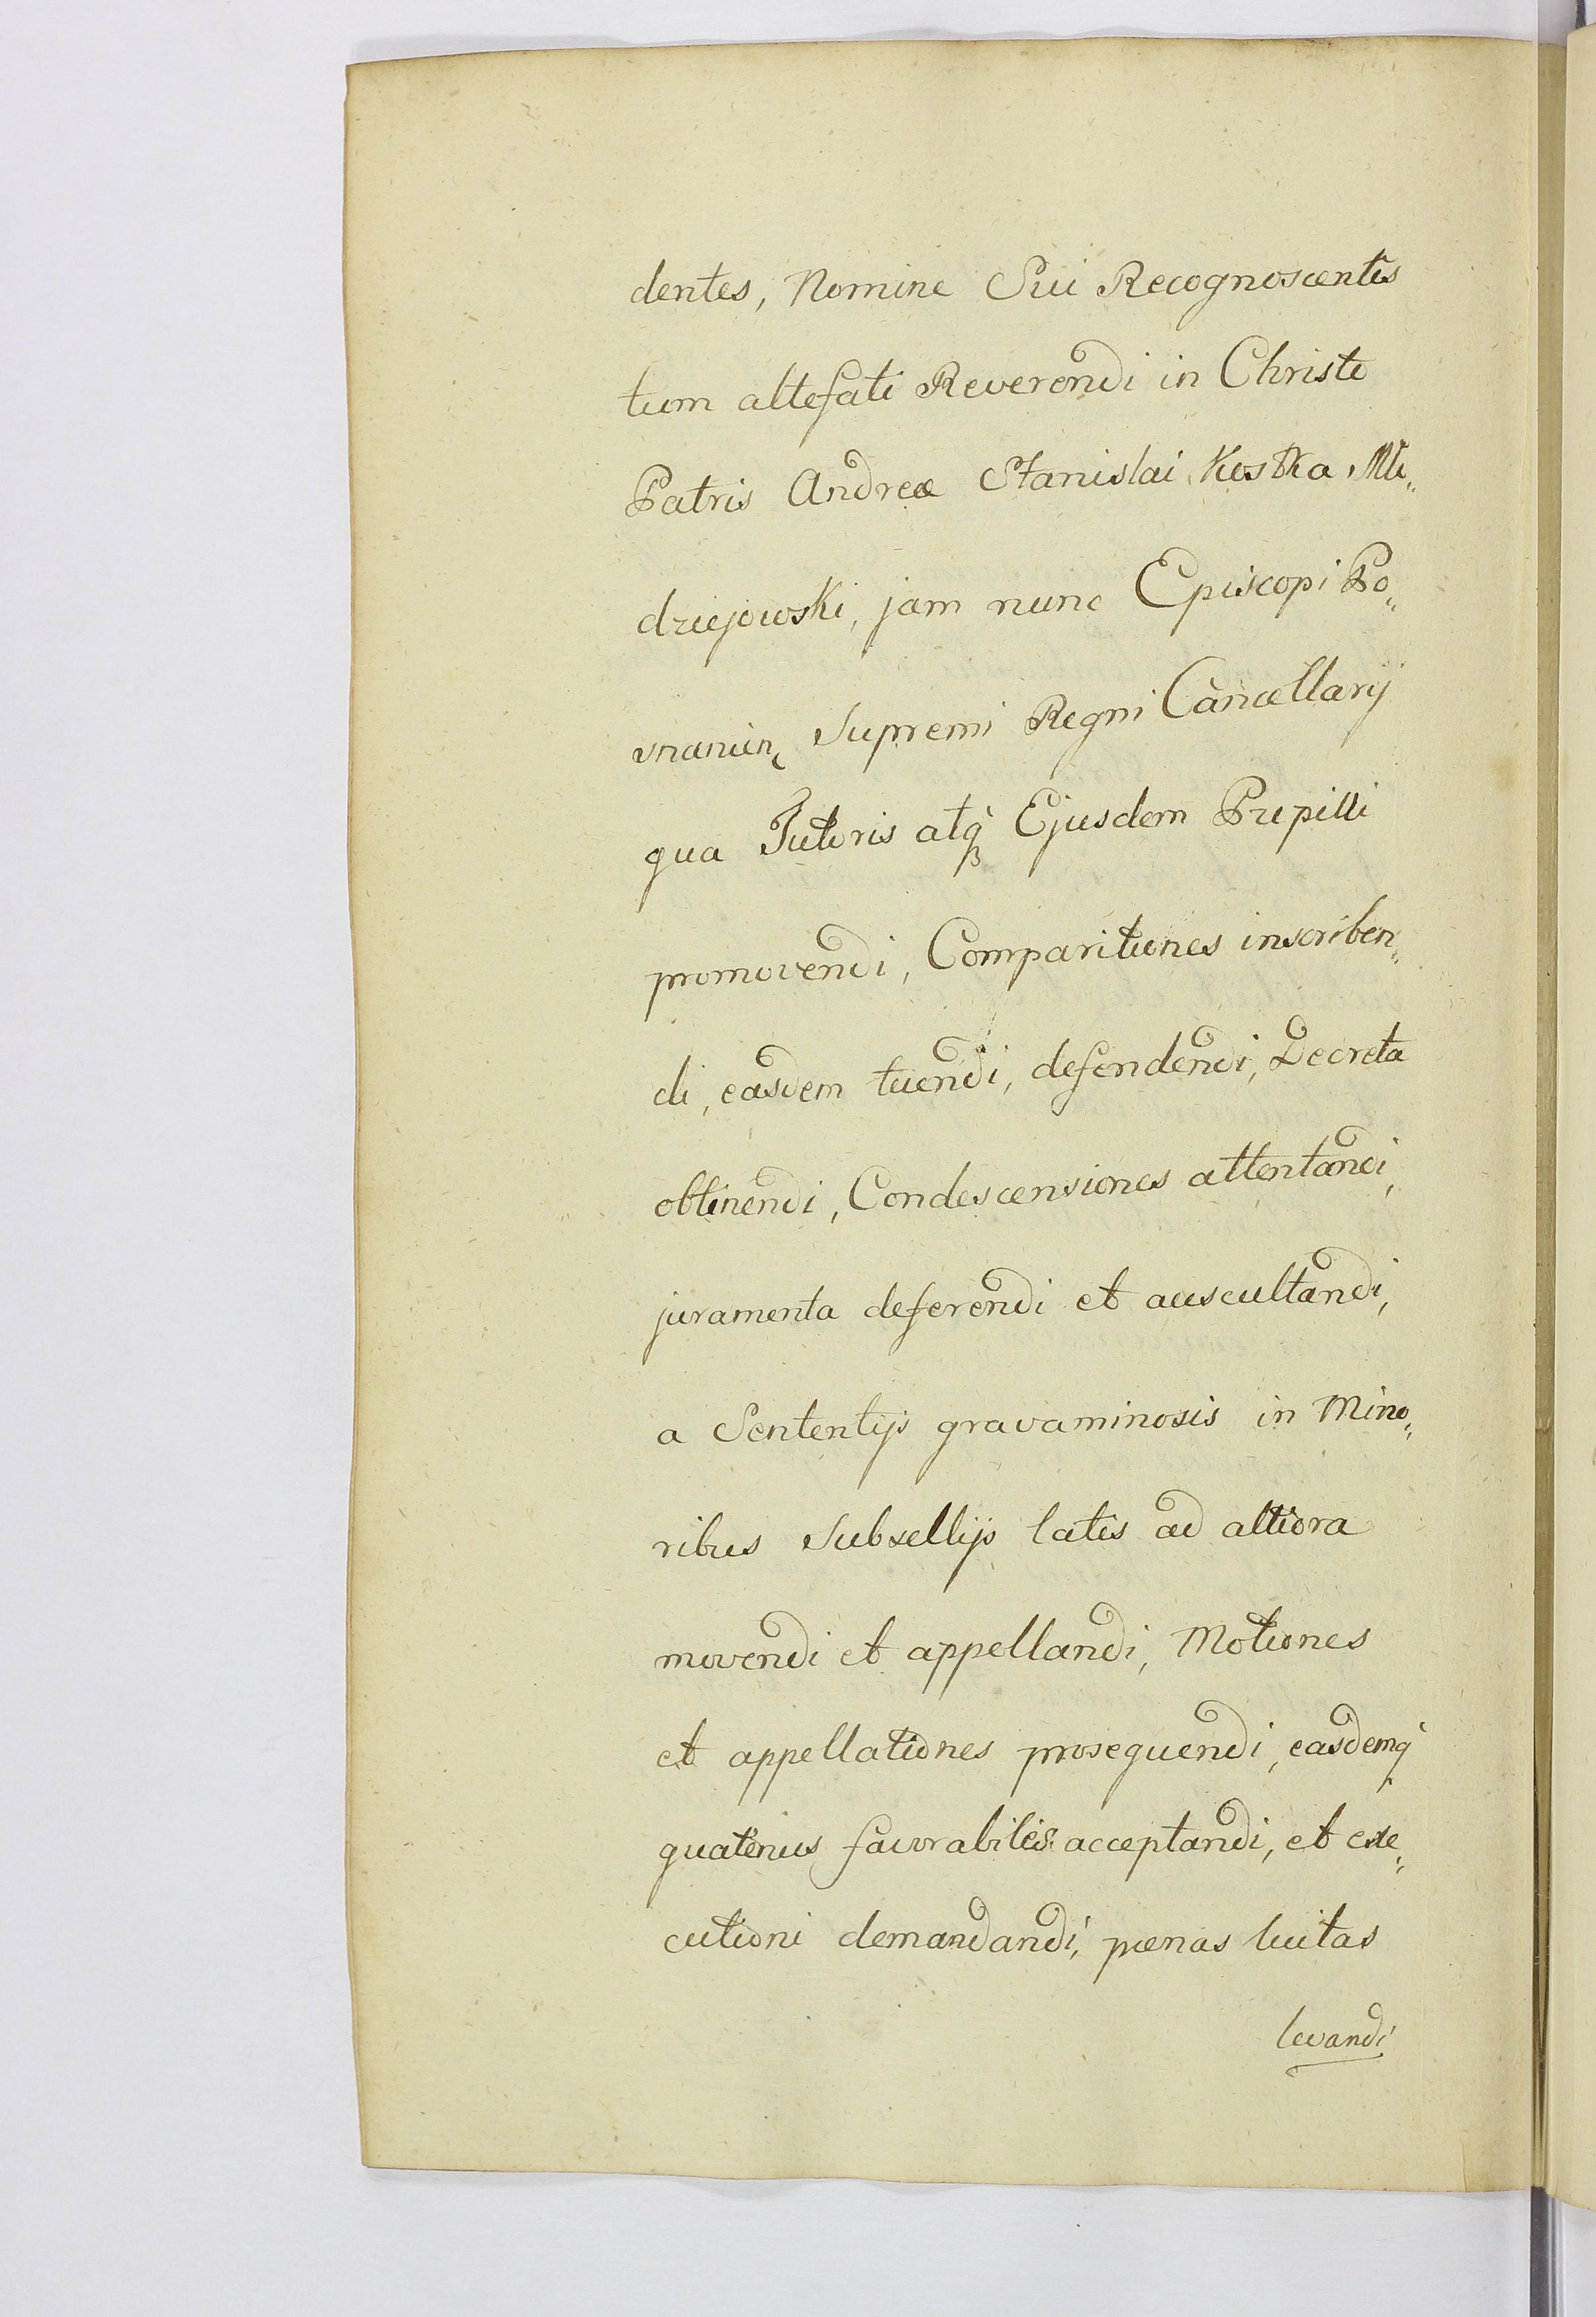 dentes, Nomine Sui Recognoscentis
tum altefati Reverendi in Christo
Patris Andreæ Stanislai Kostka Mło„
dziejowski, jam nunc Episcopi Po„
snanien, Supremi Regni Cancellarij
qua Tutoris atq́ Ejusdem Pupilli
promovendi, Comparitiones inscriben„
di, easdem tuendi, defendendi, Decreta
obtinendi, Condescensiones attentandi,
juramenta deferendi et auscultandi,
a Sententijs gravaminosis in Mino„
ribus Subsellijs latis ad altiora
movendi et appellandi, Motiones
et appellationes prosequendi, easdemq́
quatenus favorabiles acceptandi, et exe„
cutioni demandandi, pœnas luitas
levandi